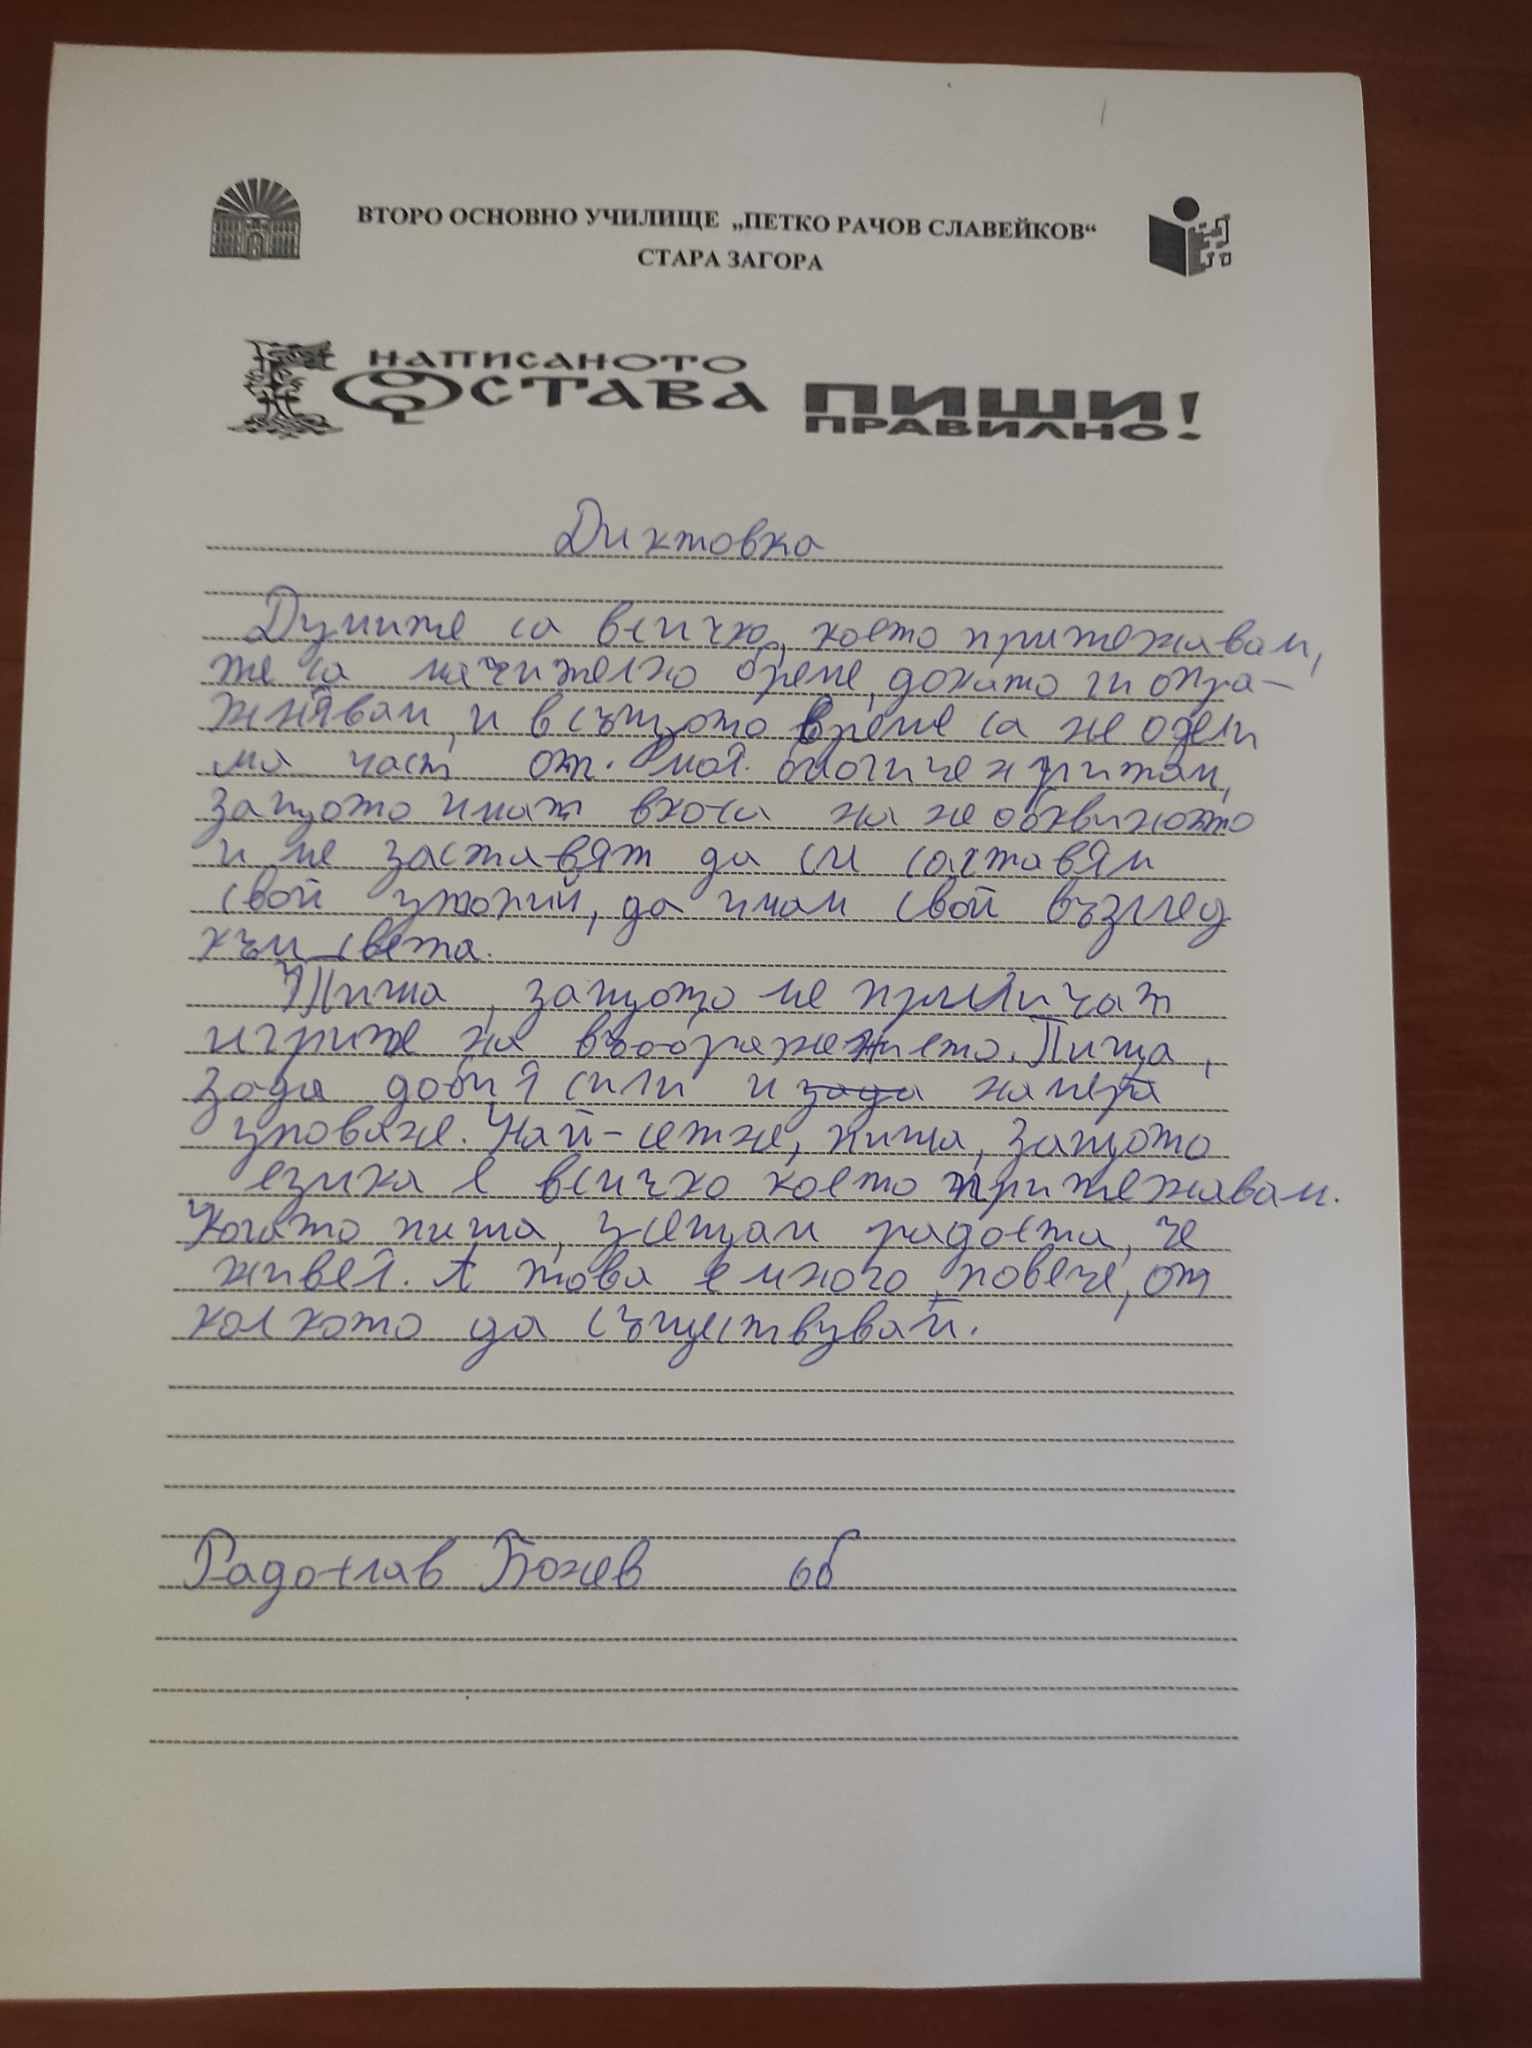 ВТОРО ОСНОВНО УЧИЛИЩЕ „ПЕТКО РАЧОВ СЛАВЕЙКОВ“
СТАРА ЗАГОРА
НАПИСАНОТО
ОСТАВА ПИШИ
ПРАВИЛНО!
Диктовка
Думите са всичко, което притежавам,
те са мачително бреме, докато ги опра-
жнявам, и в същото време са не одели
ма част от моя биогичен ритам,
защото имат вкоса на необквиното
и ме заставят да си саставям
свой утопий, да имам свой възглед
към света.
Пиша, защото ме привичат
игрите на въображението. Пиша,
зада добия сили и зада намеря
уповане. Най-сетне, пиша, защото
езика е всичко което притежавам.
Когато пиша, усещам радоста, че
живея. А това е много, повече, от
колкото да съществувай.
Радослав Божев 6б